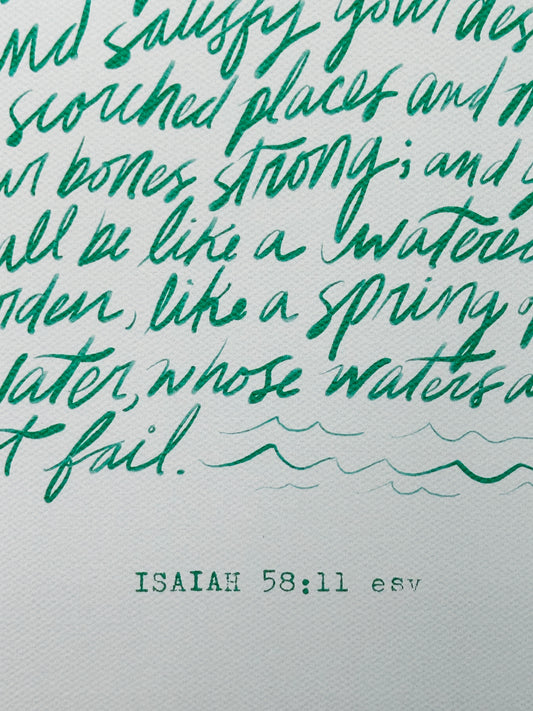 and satisfy your des
scorched places and m
ur bones strong; and y
all be like a watered
rden, like a spring o
Water, whose waters d
t fail.
ISAIAH 58:11 esv